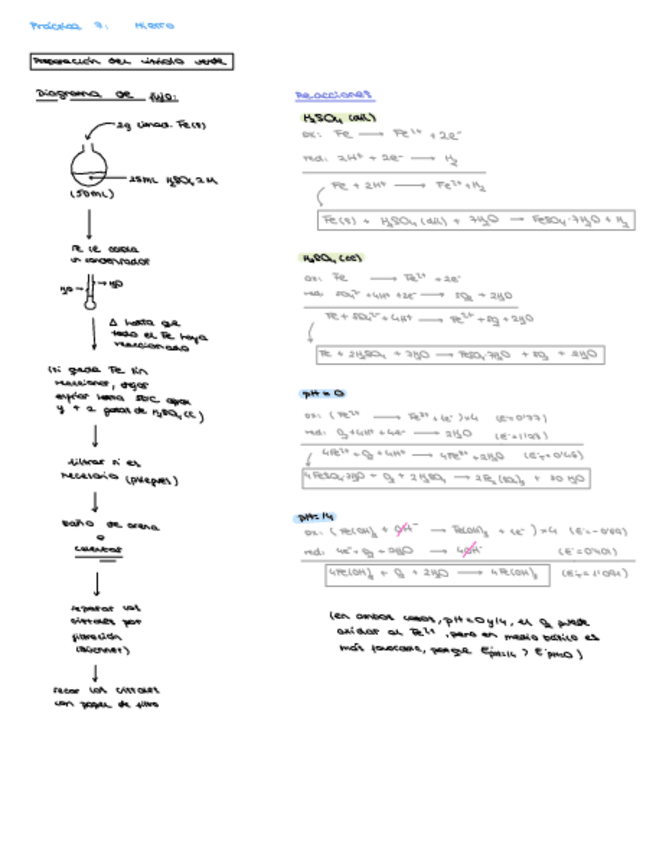 Práctica 7: Hierro
Preparación del vitriolo verde
Diagrama de flujo:
2g limad. Fe(s)
25mL H₂SO₄ 2M
(50mL)
Fe se acopla
un condensador
H₂O → → H₂O
Δ hasta que
todo el Fe haya
reaccionado
(si queda Fe sin
reaccionar, dejar
enfriar hasta 50ºC aprox
y + 2 gotas de H₂SO₄ cc)
filtrar si es
necesario (pliegues)
baño de arena
o
calentar
separar los
cristales por
filtración
(Büchner)
secar los cristales
con papel de filtro
Reacciones
H₂SO₄ (dil)
ox: Fe → Fe²⁺ + 2e⁻
red: 2H⁺ + 2e⁻ → H₂
Fe + 2H⁺ → Fe²⁺ + H₂
Fe(s) + H₂SO₄ (dil) + 7H₂O → FeSO₄·7H₂O + H₂
H₂SO₄ (cc)
ox: Fe → Fe²⁺ + 2e⁻
red: SO₄²⁻ + 4H⁺ + 2e⁻ → SO₂ + 2H₂O
Fe + SO₄²⁻ + 4H⁺ → Fe²⁺ + SO₂ + 2H₂O
Fe + 2H₂SO₄ + 7H₂O → FeSO₄·7H₂O + SO₂ + 2H₂O
pH = 0
ox: (Fe²⁺ → Fe³⁺ + 1e⁻) x4 (E=0'77)
red: O₂ + 4H⁺ + 4e⁻ → 2H₂O
4Fe²⁺ + O₂ + 4H⁺ → 4Fe³⁺ + 2H₂O
4FeSO₄·7H₂O + O₂ + 2H₂SO₄ → 2Fe₂(SO₄)₃ + 30 H₂O
pH = 14
ox: (Fe(OH)₂ + OH⁻ → Fe(OH)₃ + 1e⁻) x4
red: 4e⁻ + O₂ + 2H₂O → 4OH⁻ (E=0'401)
4Fe(OH)₂ + O₂ + 2H₂O → 4Fe(OH)₃
(en ambos casos, pH = 0 y 14, el O₂ puede
oxidar al Fe²⁺, pero en medio básico es
más favorable, porque E pH=14 > E pH=0)